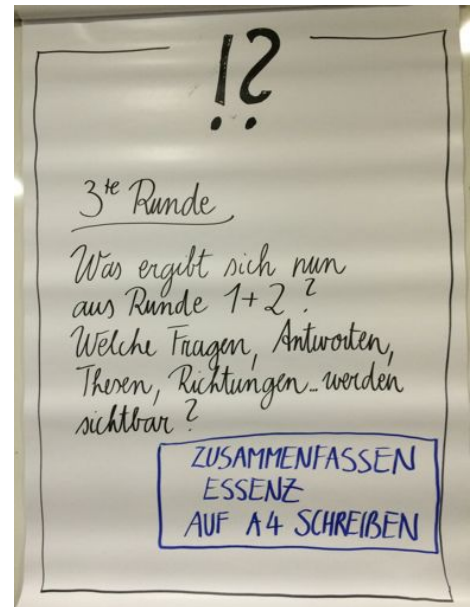 !?
3te Runde
Was ergibt sich nun
aus Runde 1+2?
Welche Fragen, Antworten,
Thesen, Richtungen... werden
sichtbar?
ZUSAMMENFASSEN
ESSENZ
AUF A4 SCHREIBEN